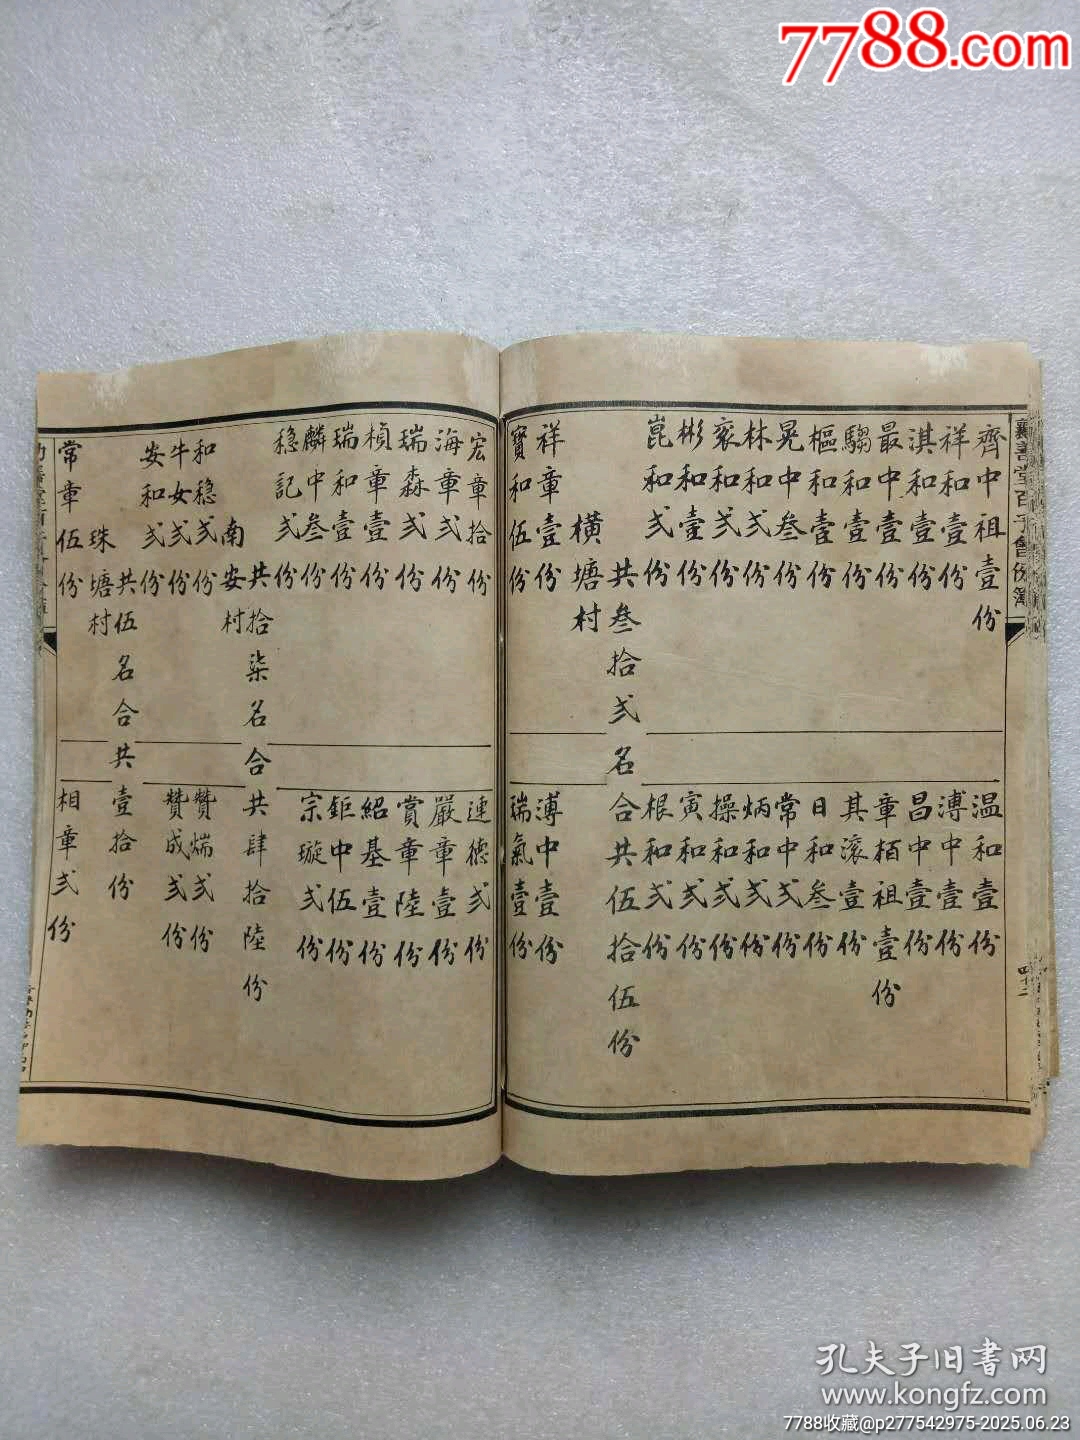 7788.com
襄善堂百子會份簿
四十二
齊中祖壹份
祥和壹份
淇和壹份
最中壹份
騶和壹份
樞和壹份
晃中叁份
林和弍份
衮和弍份
彬和壹份
崑和弍份
温和壹份
溥中壹份
昌中壹份
章栢祖壹份
其滚壹份
日和叁份
常中弍份
炳和弍份
操和弍份
寅和弍份
根和弍份
共叁拾弍名合共伍拾伍份
橫塘村
祥章壹份
寳和伍份
溥中壹份
瑞氣壹份
宏章拾份
海章弍份
瑞森弍份
楨章壹份
瑞和壹份
麟中叁份
稳記弍份
連德弍份
嚴章壹份
賞章陸份
紹基壹份
鉅中伍份
宗璇弍份
共拾柒名合共肆拾陸份
南安村
和稳弍份
牛女弍份
安和弍份
贊煓弍份
贊成弍份
共伍名合共壹拾份
珠塘村
常章伍份
相章弍份
孔夫子旧書网
www.kongfz.com
7788收藏@p277542975-2025.06.23